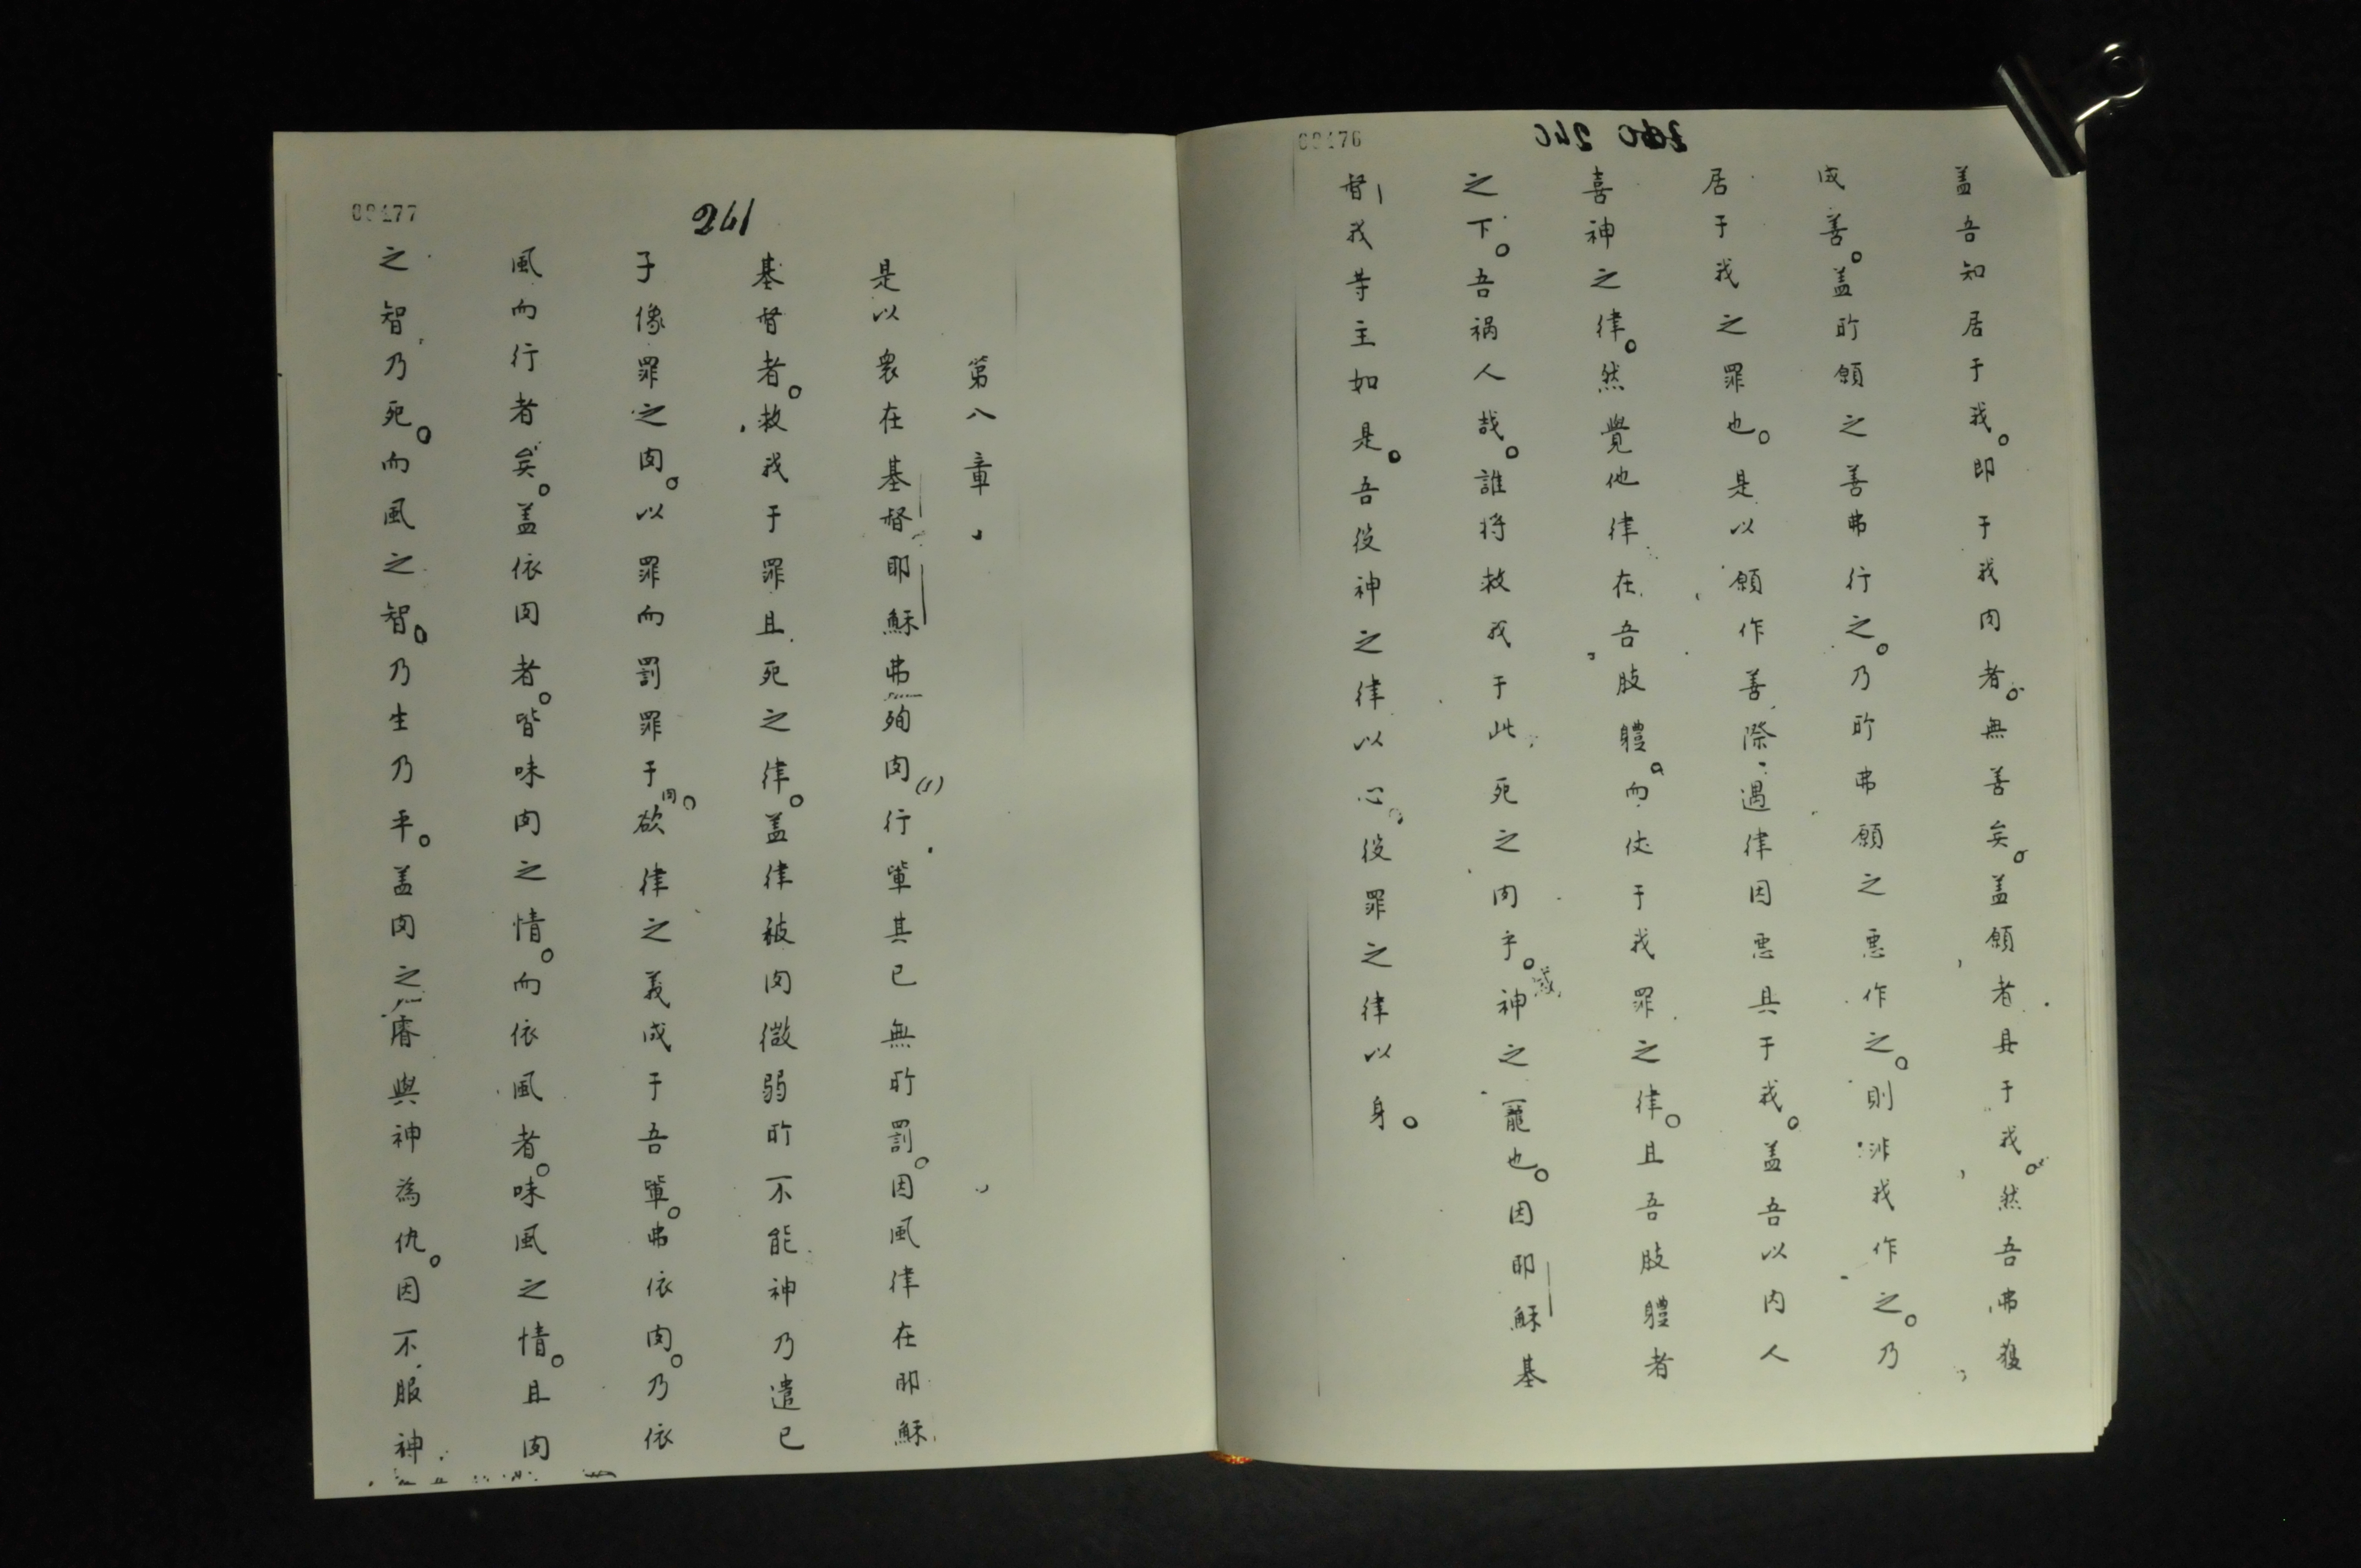 00476
240 240
蓋吾知居于我。即于我肉者。無善矣。蓋願者具于我。然吾弗獲
成善。蓋所願之善弗行之。乃所弗願之惡作之。則非我作之。乃
居于我之罪也。是以願作善際遇律因惡具于我。蓋吾以内人
喜神之律。然覺他律在吾肢體。而仗于我罪之律。且吾肢體者
之下。吾禍人哉。誰將救我于此死之肉乎。神之寵也。因耶穌基
督我等主如是。吾役神之律以心。役罪之律以身。
00477
241
第八章
是以衆在基督耶穌弗殉肉(1)行輩其已無所罰。因風律在耶穌
基督者。救我于罪且死之律。蓋律被肉微弱所不能神乃遣己
子像罪之肉。以罪而罰罪于肉。欲律之義成于吾輩。弗依肉。乃依
風而行者矣。蓋依肉者。皆味肉之情。而依風者。味風之情。且肉
之智乃死。而風之智。乃生乃平。蓋肉之睿與神為仇。因不服神